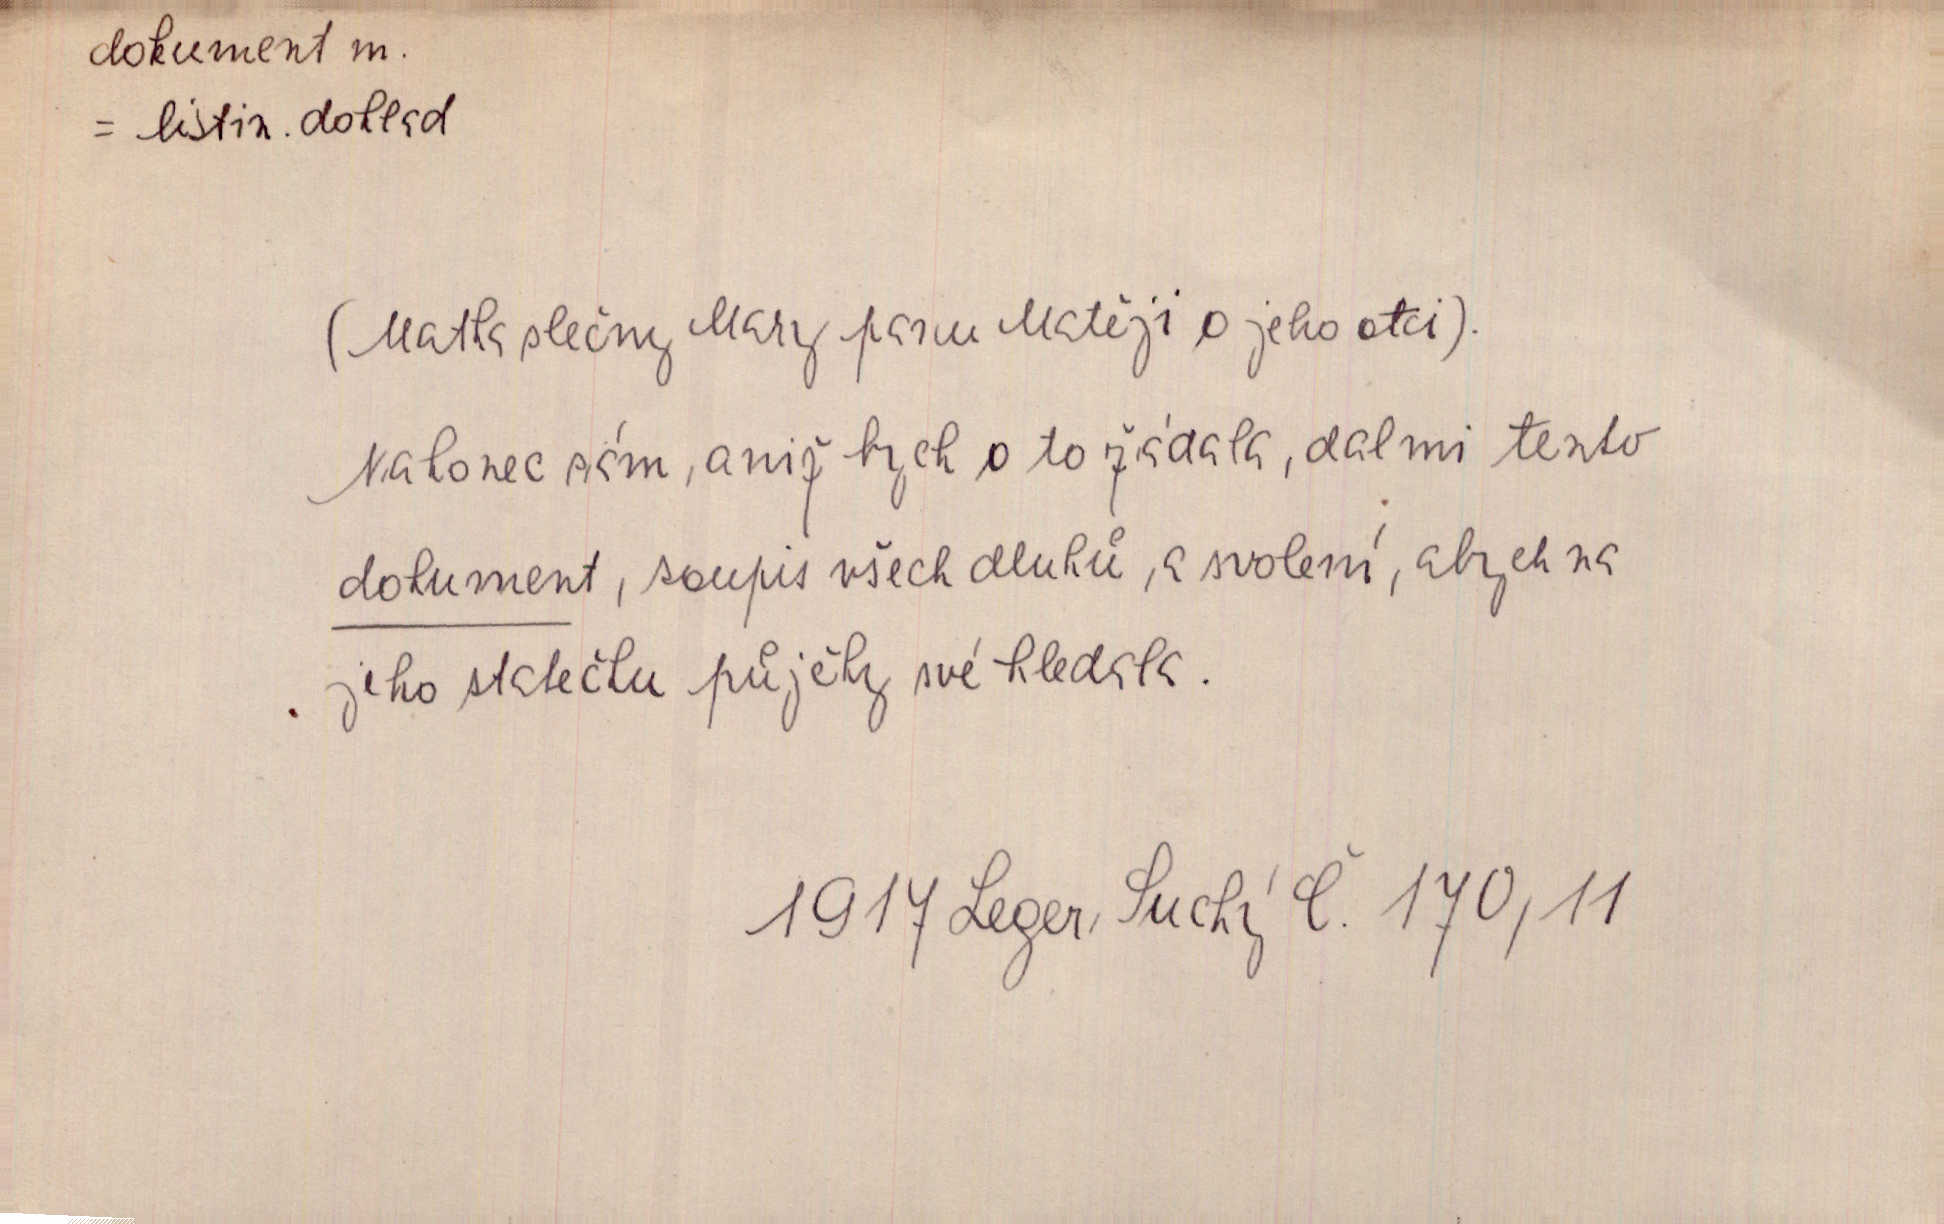 dokument m.
= listin. doklad
(Matka slečny Mary panu Matěji o jeho otci).
Nakonec sám, aniž bych o to žádala, dal mi tento
dokument, soupis všech dluhů, a svolení, abych na
jeho statečku půjčky své hledala.
1917 Leger, Suchý Č. 170, 11